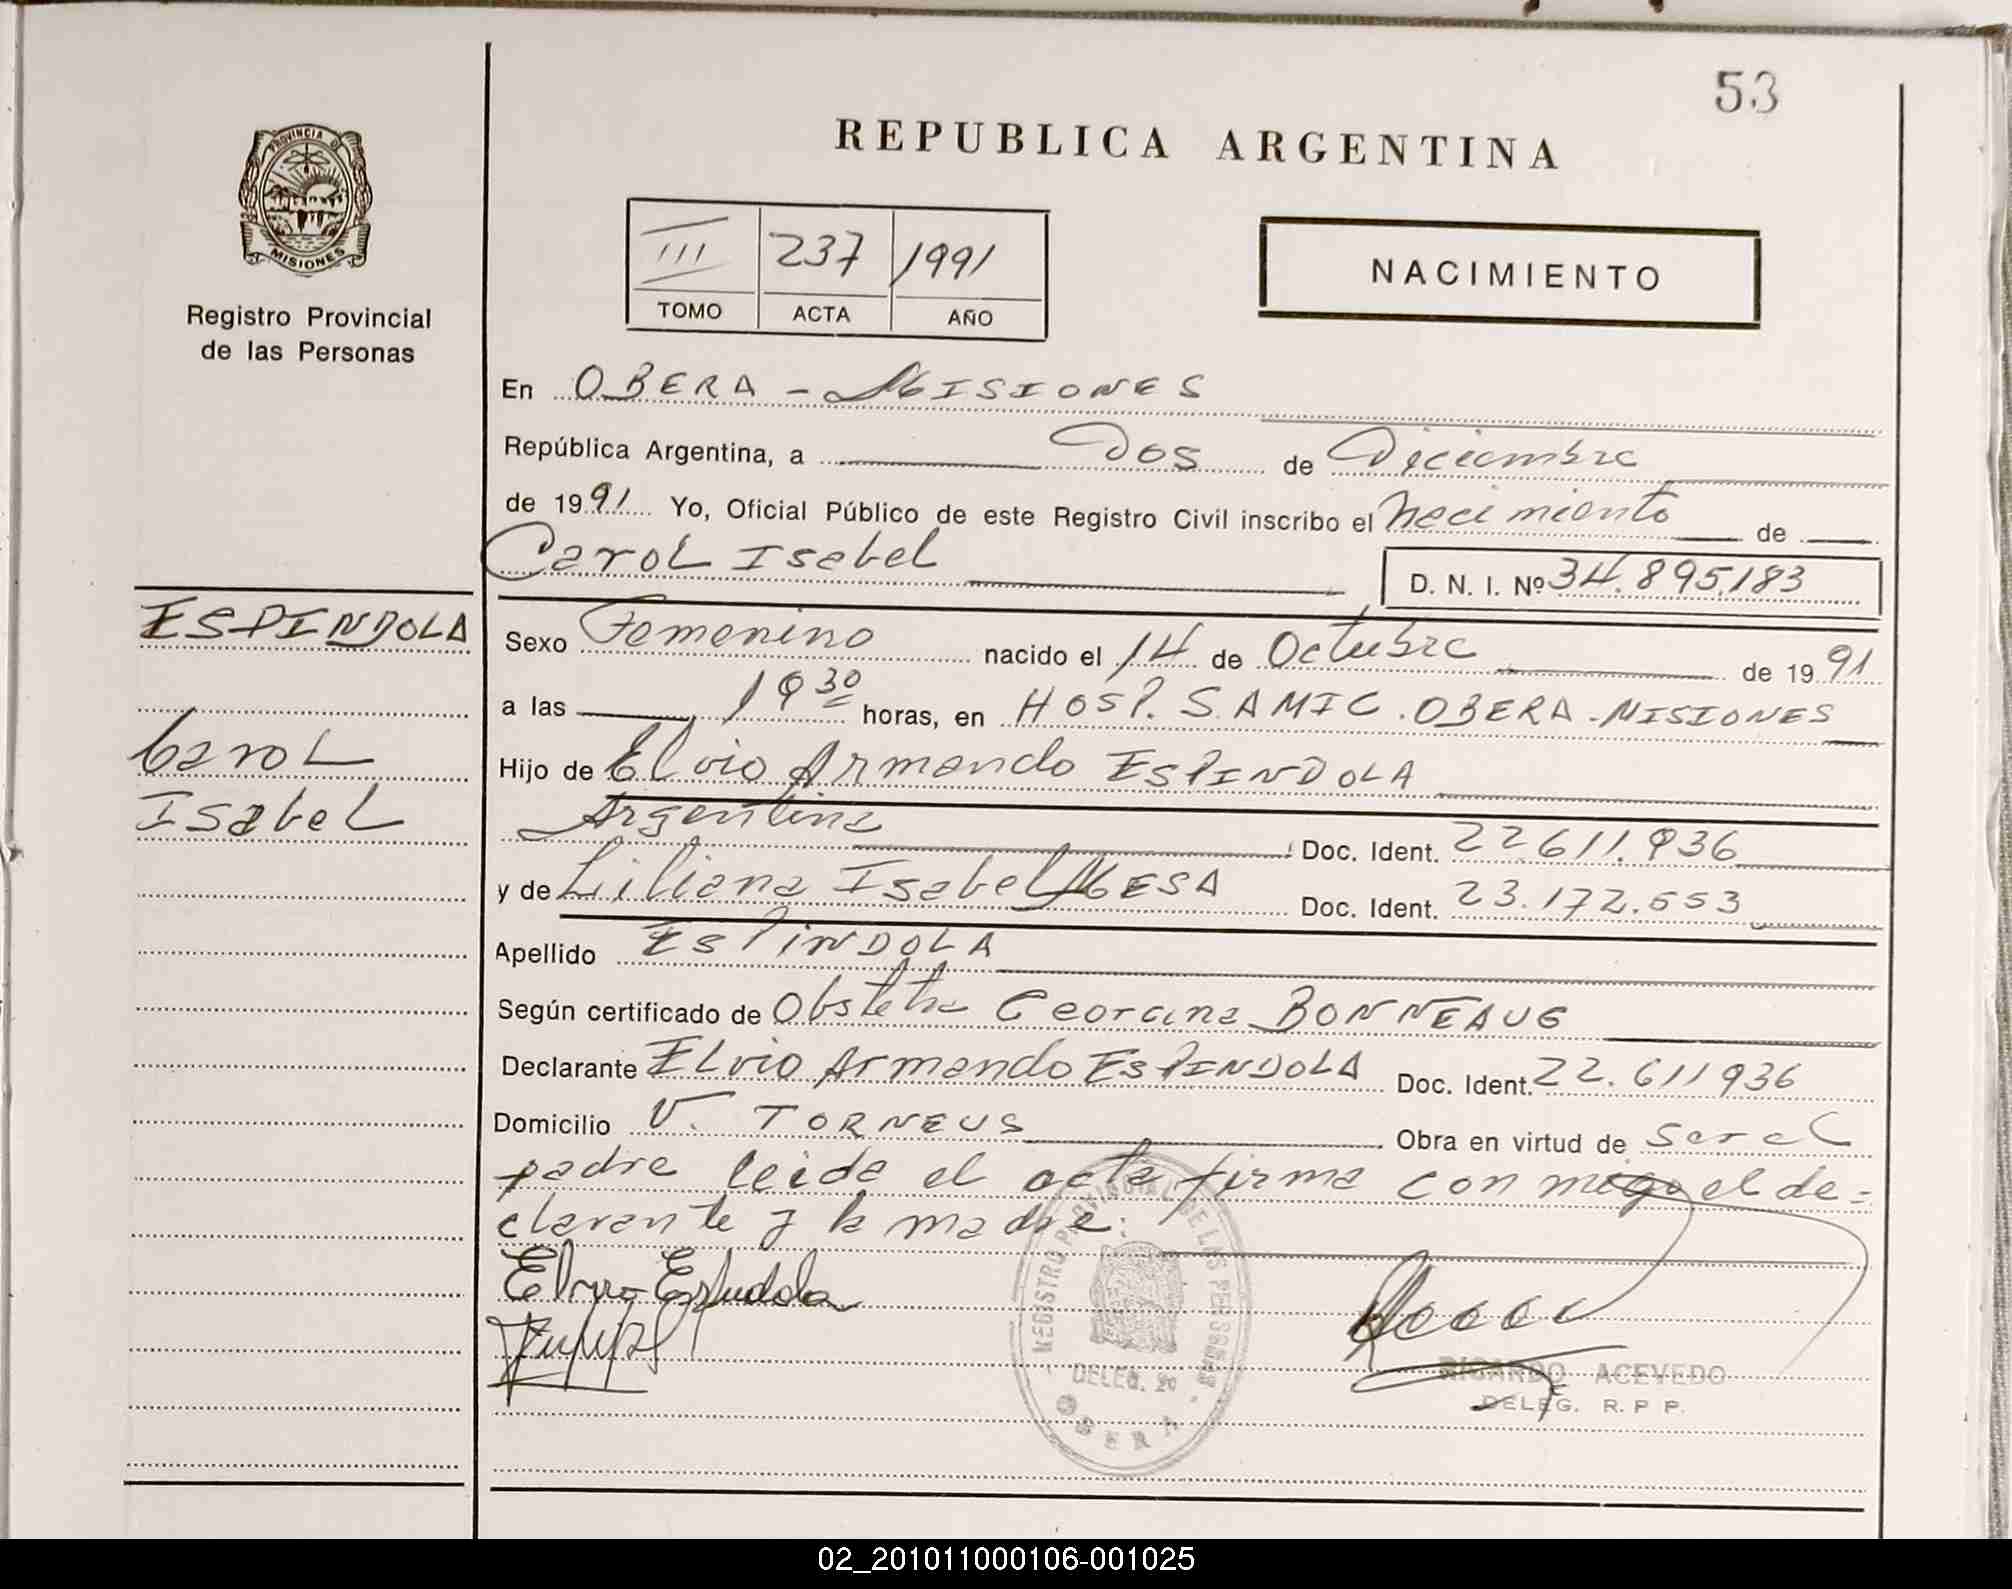 53
REPUBLICA ARGENTINA
PROVINCIA DE
MISIONES
Registro Provincial
de las Personas
III 237 1991
TOMO ACTA AÑO
NACIMIENTO
En OBERA - MISIONES
República Argentina, a Dos de Diciembre
de 1991 Yo, Oficial Público de este Registro Civil inscribo el Nacimiento de
Carol Isabel D. N. I. Nº 34.895.183
ESPINDOLA
Carol
Isabel
Sexo Femenino nacido el 14 de Octubre de 1991
a las 19 30 horas, en HOSP. SAMIC. OBERA - MISIONES
Hijo de Elvio Armando ESPINDOLA
Argentina Doc. Ident. 22.611.936
y de Liliana Isabel MESA Doc. Ident. 23.172.553
Apellido ESPINDOLA
Según certificado de Obstetra Georgina BONNEAUG
Declarante ELvio Armando ESPINDOLA Doc. Ident. 22.611936
Domicilio V. TORNEUS Obra en virtud de ser el
padre leida el acta firma con migo el de=
clarante y la madre.
REGISTRO PROVINCIAL DE LAS PERSONAS
DELEG. 20
OBERA
RICARDO ACEVEDO
DELEG. R. P P.
02_201011000106-001025